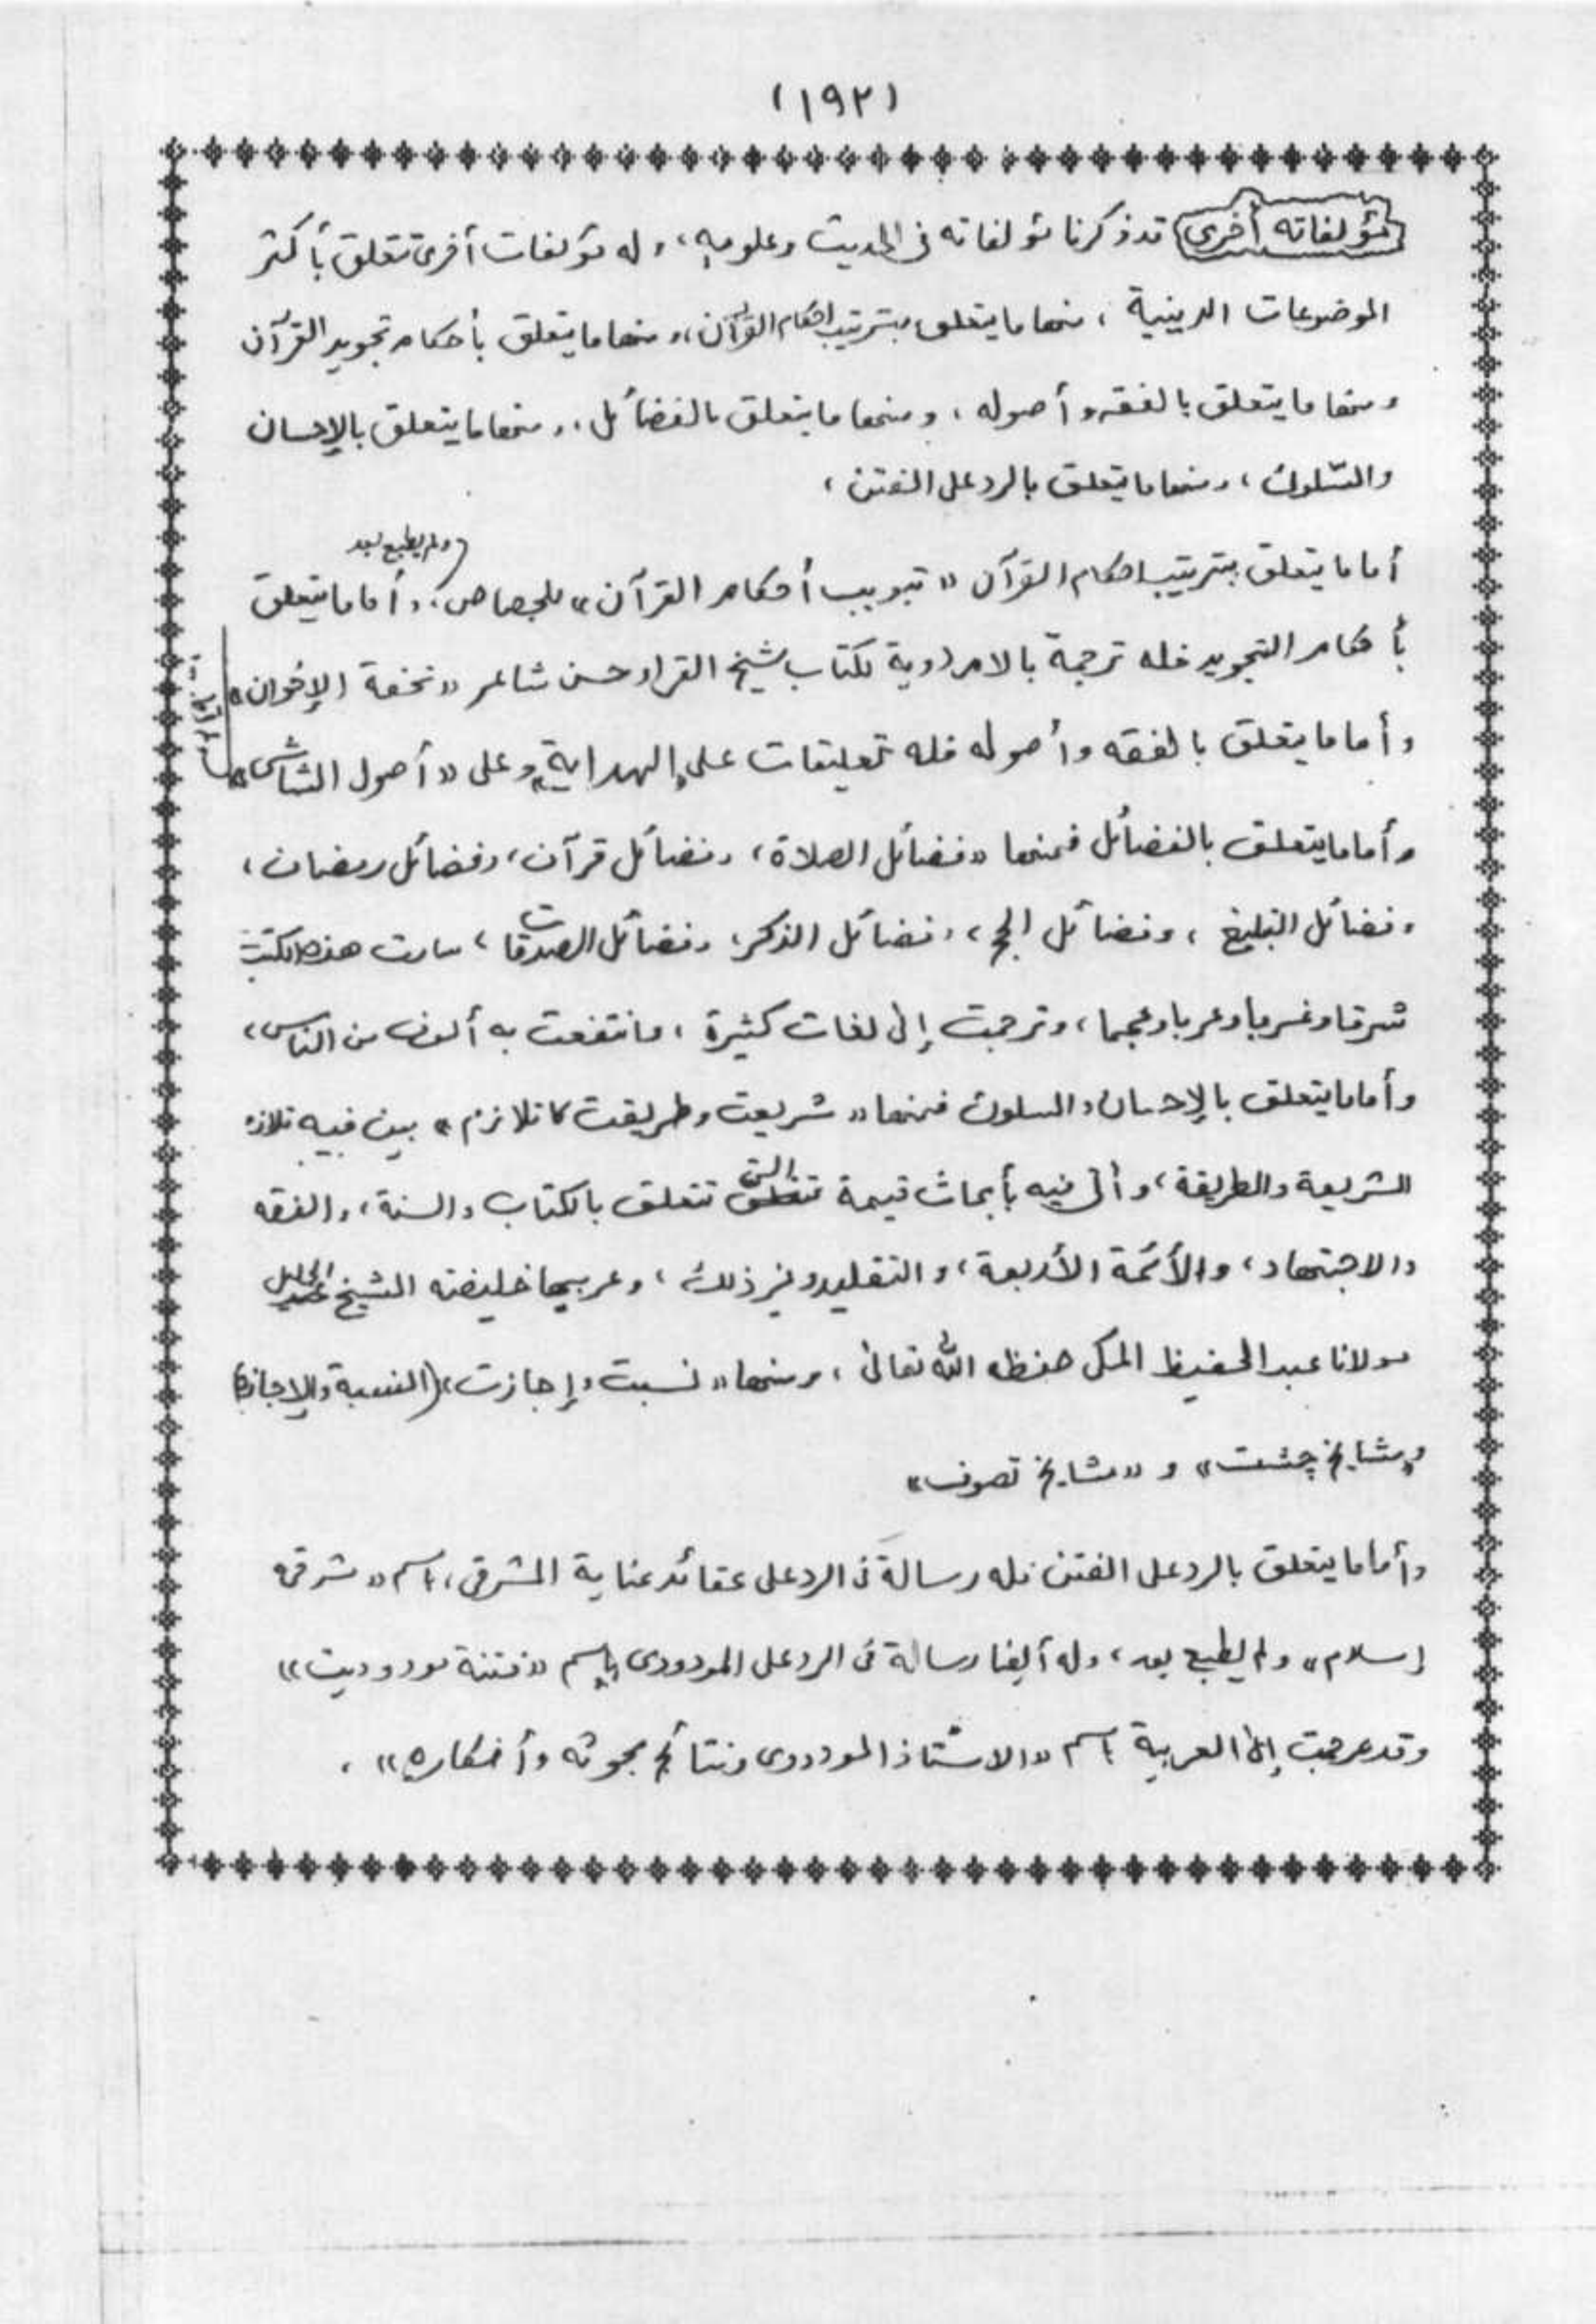 (١٩٢)
مؤلفاته أخرى قد ذكرنا مؤلفاته في الحديث وعلومه، وله مؤلفات أخرى تتعلق بأكثر
الموضوعات الدينية، منها ما يتعلق بترتيب احكام القرآن، ومنها ما يتعلق بأحكام تجويد القرآن
ومنها ما يتعلق بالفقه وأصوله، ومنها ما يتعلق بالفضائل، ومنها ما يتعلق بالإحسان
والسّلوك، ومنها ما يتعلق بالرد على الفتن،
ولم يطبع بعد
أما ما يتعلق بترتيب احكام القرآن «تبويب أحكام القرآن» للجصاص، وأما ما يتعلق
بأحكام التجويد فله ترجمة بالاردوية لكتاب شيخ القراء حسن شاعر «تحفة الإخوان»
وأما ما يتعلق بالفقه وأصوله فله تعليقات على «الهداية» وعلى «أصول الشاشى»
وأما ما يتعلق بالفضائل فمنها «فضائل الصلاة، وفضائل قرآن، وفضائل رمضان،
وفضائل التبليغ، وفضائل الحج، وفضائل الذكر، وفضائل الصدقات، سارت هذه الكتب
شرقا وغربا وعربا وعجما، وترجمت إلى لغات كثيرة، وانتفعت به ألوف من الناس،
وأما ما يتعلق بالإحسان والسلوك فمنها «شريعت وطريقت كا تلازم» بين فيه تلازم
الشريعة والطريقة، وأتى فيه بأبحاث قيمة التي تتعلق بالكتاب والسنة، والفقه
والاجتهاد، والأئمة الأربعة، والتقليد وغير ذلك، وعربها خليفته الشيخ الجليل
مولانا عبد الحفيظ المكى حفظه الله تعالى، ومنها «نسبت وإجازت» (النسبة والإجازة)
و«مشايخ چشت» و «مشايخ تصوف»
وأما ما يتعلق بالرد على الفتن فله رسالة في الرد على عقائد عناية المشرقى، باسم «مشرقى
إسلام» ولم يطبع بعد، وله أيضا رسالة في الرد على المودودى باسم «فتنة مودوديت»
وقد عرجبت إلى العربية باسم «الاستاذ المودودى ونتائج بحوثه وأفكاره».